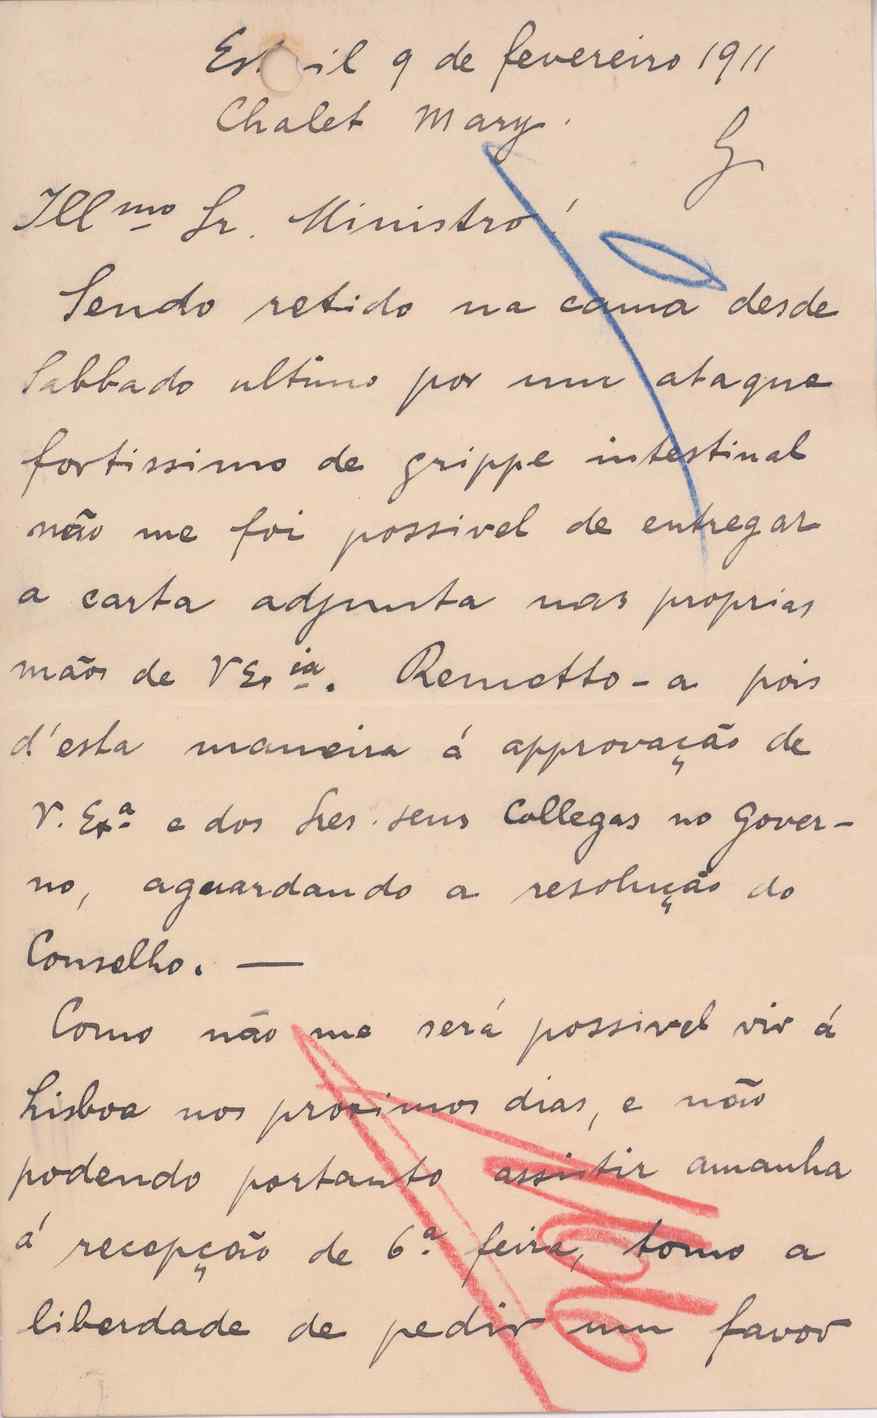 Estoril 9 de fevereiro 1911
Chalet Mary.
Illmo Sr. Ministro!
Sendo retido na cama desde
Sabbado ultimo por um ataque
fortissimo de grippe intestinal
não me foi possivel de entregar
a carta adjunta nas proprias
mãos de V Ex.ia. Remetto-a pois
d'esta maneira á approvação de
V. Exa e dos Sres. seus Collegas no Gover-
no, aguardando a resolução do
Conselho. —
Como não me será possivel vir á
Lisboa nos proximos dias, e não
podendo portanto assistir amanha
á recepção de 6.a feira, tomo a
liberdade de pedir um favor